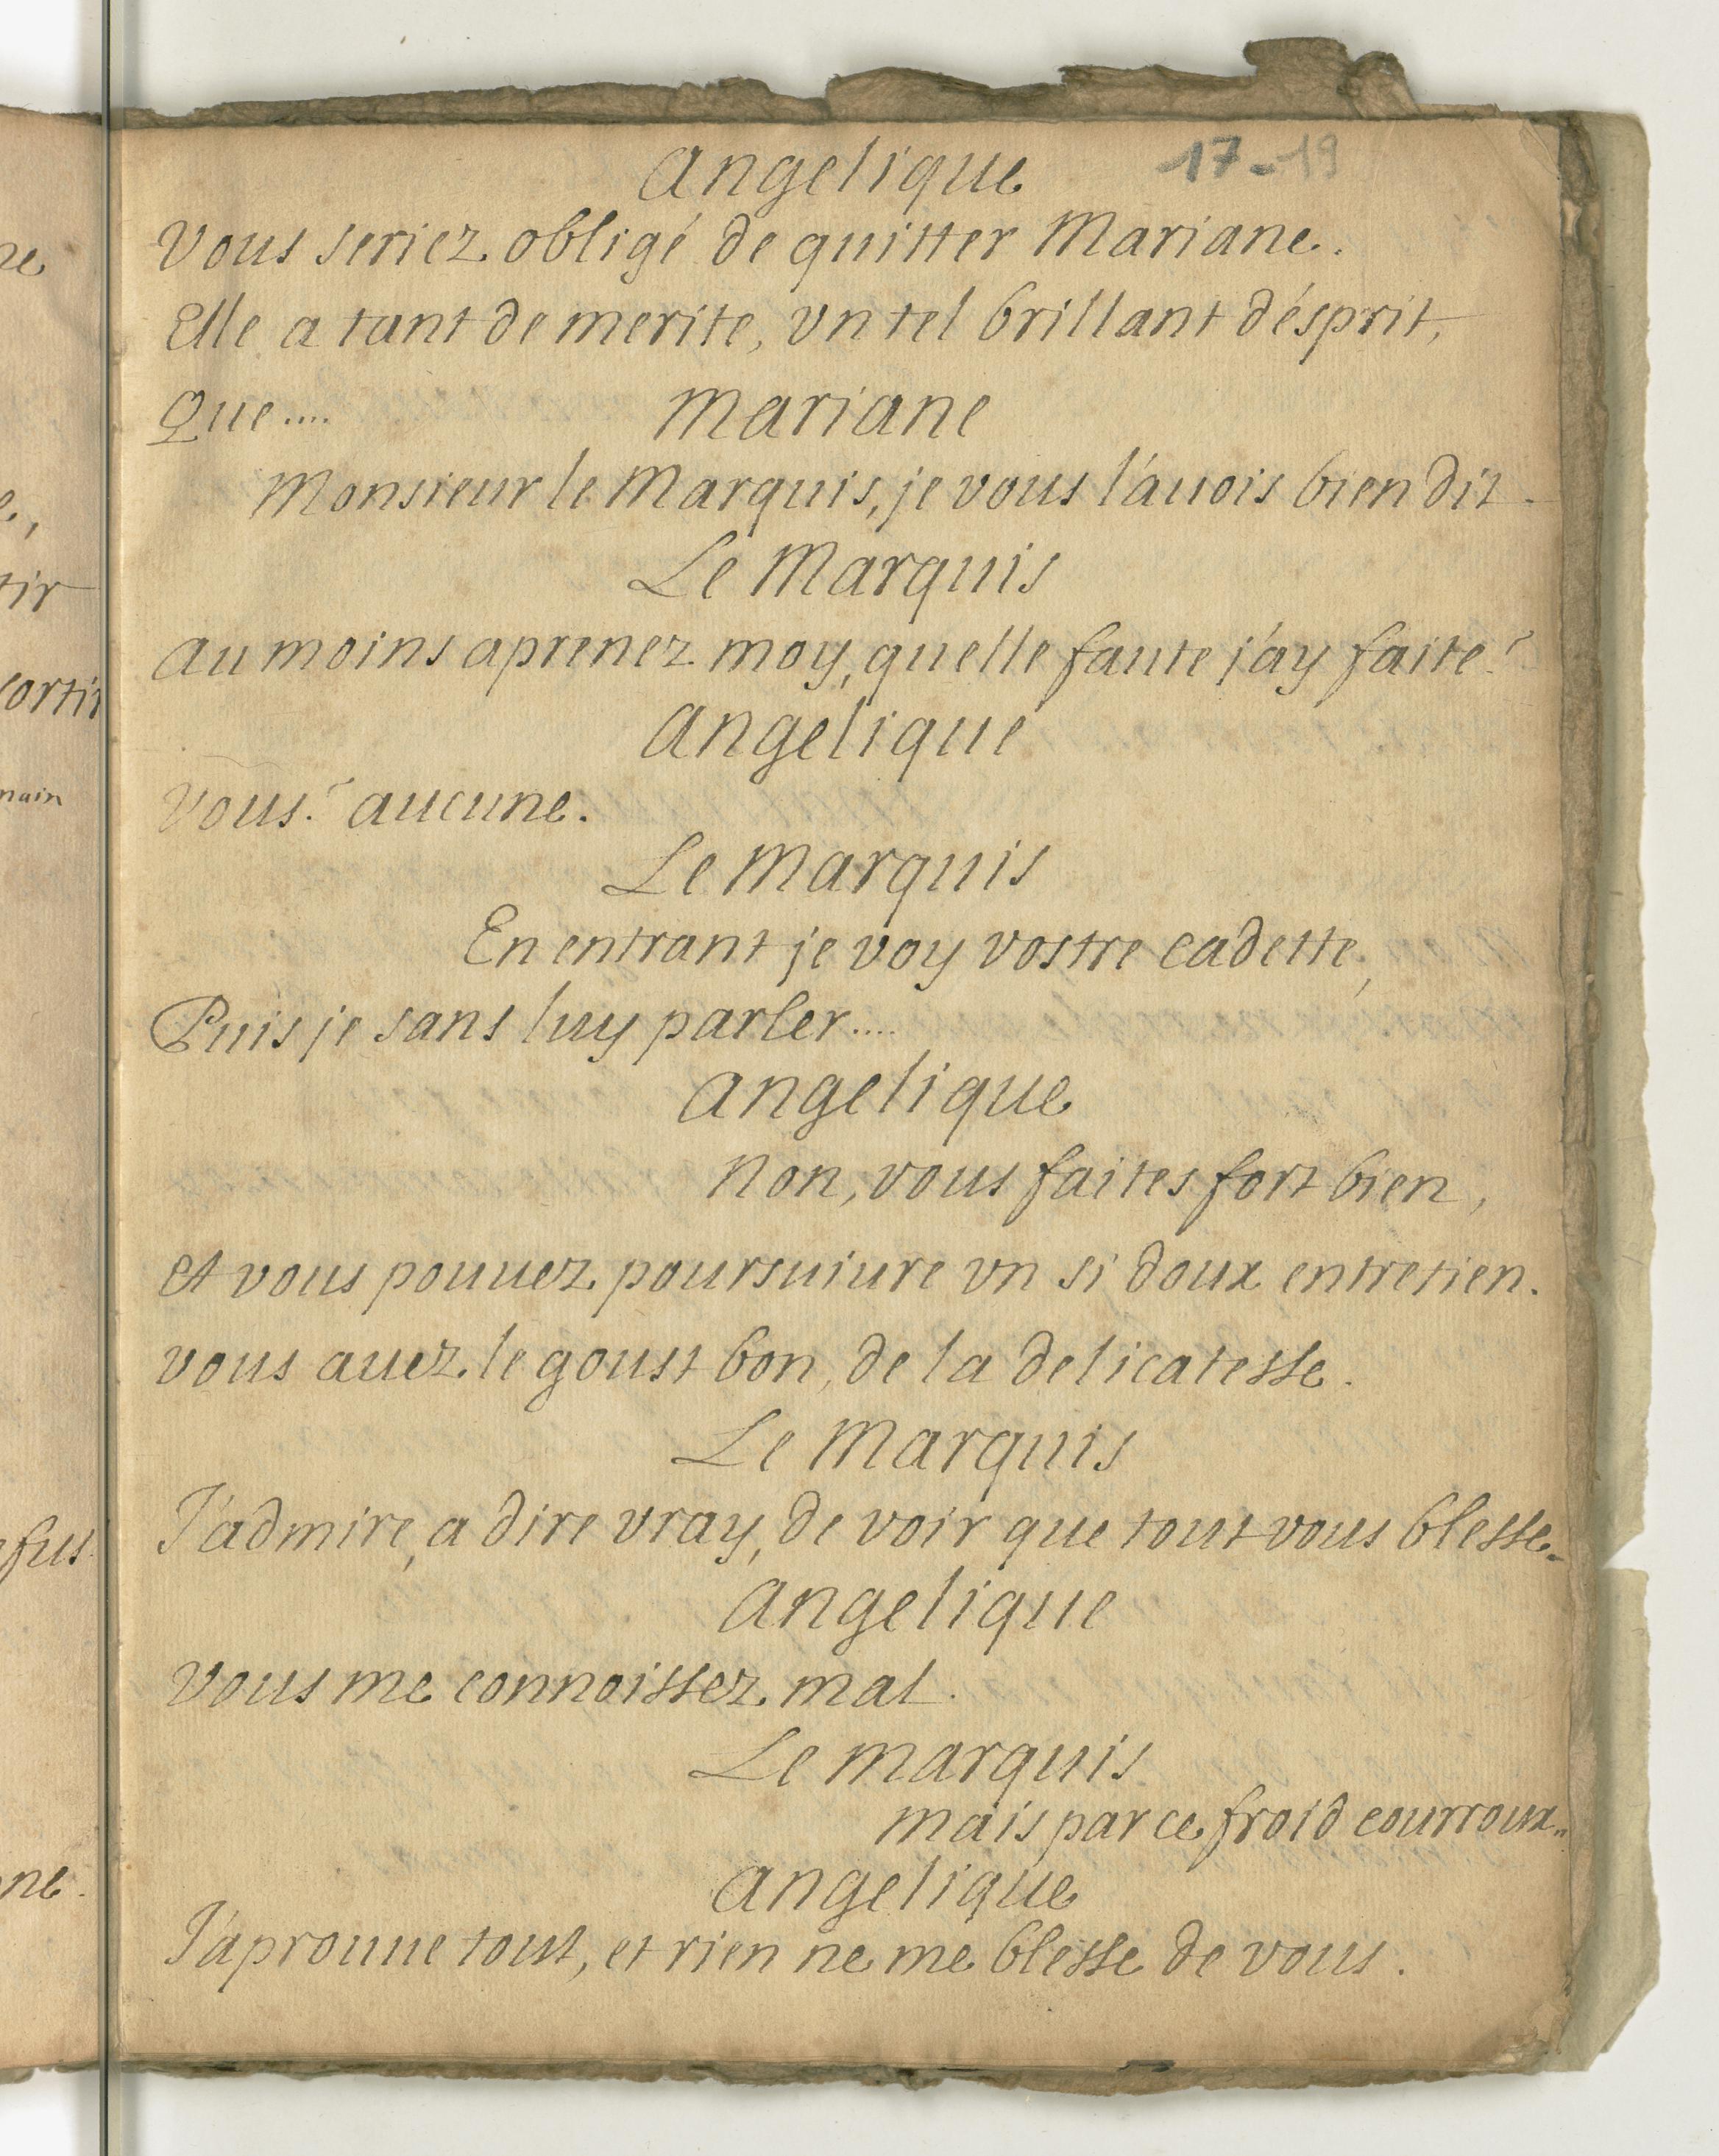 Angelique 17-19
Vous seriez obligé de quitter Mariane.
Elle a tant de merite, vn tel brillant d'ésprit,
Que.... Mariane
Monsieur le Marquis, je vous l'auois bien dit.
Le Marquis
Au moins aprenez moy, quelle faute j'ay faite?
Angelique
Vous? aucune.
Le Marquis
En entrant je voy vostre cadette,
Puis je sans luy parler....
Angelique
Non, vous faites fort bien,
Et vous pouuez poursuiure vn si doux entretien.
vous auez le goust bon, de la delicatesse.
Le Marquis
J'admire, a dire vray, de voir que tout vous blesse.
Angelique
Vous me connoissez mal.
Le Marquis
mais par ce froid courroux..
Angelique
J'aprouue tout, et rien ne me blesse de vous.